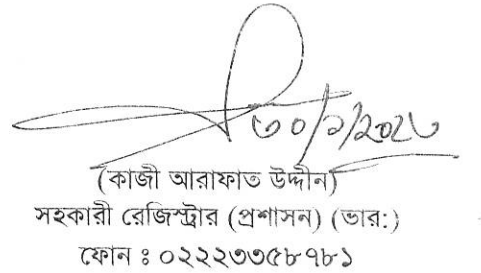 ৩০/১/২০২৬
(কাজী আরাফাত উদ্দীন)
সহকারী রেজিস্ট্রার (প্রশাসন) (ভার:)
ফোন ঃ ০২২২৩৩৫৮৭৮১